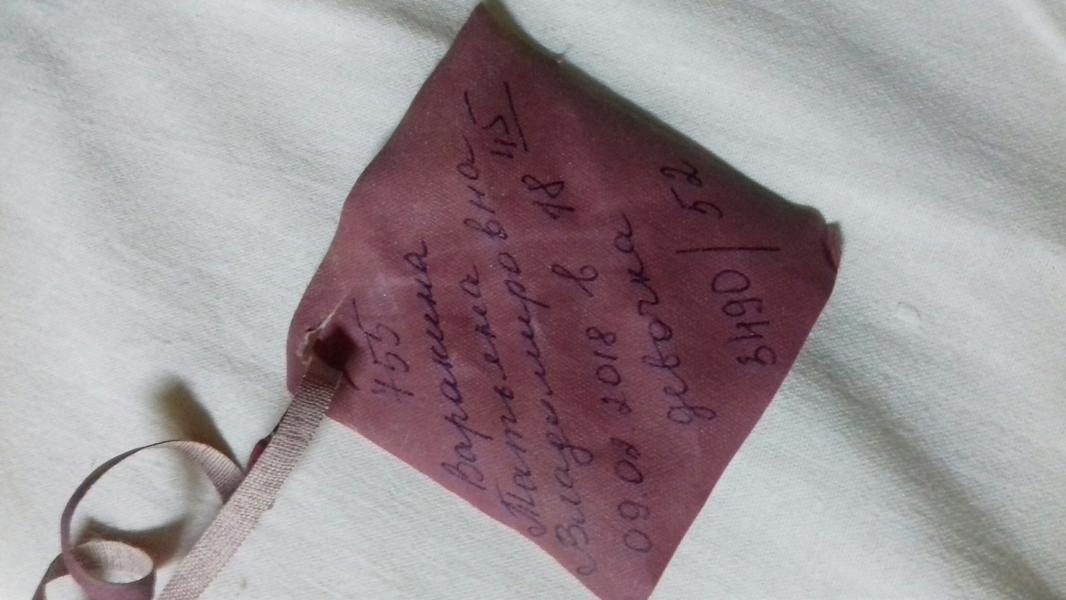 755
Варакина
Татьяна
Владимировна
09.08.2018 в 18 45
девочка
3490/52